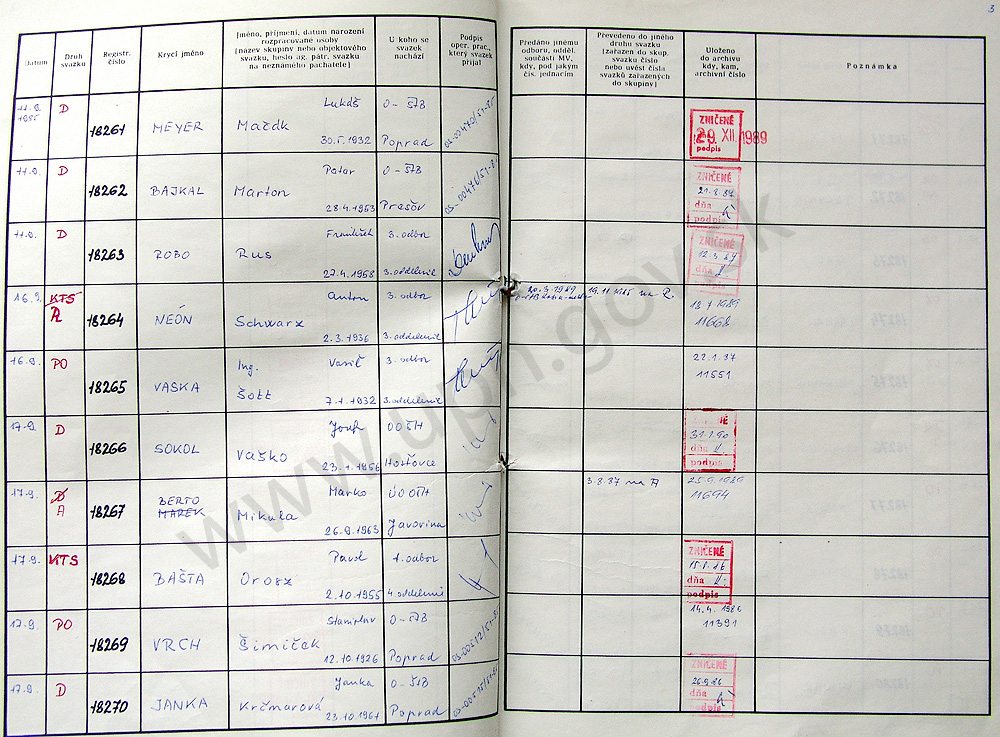 3
Datum
Druh svazku
Registr. číslo
Krycí jméno
Jméno, příjmení, datum narození rozpracované osoby
[název skupiny nebo objektového svazku, heslo ag. pátr. svazku na neznámého pachatele]
U koho se svazek nachází
Podpis oper. prac., který svazek přijal
Předáno jinému odboru, odděl. součásti MV, kdy, pod jakým čís. jednacím
Převedeno do jiného druhu svazku [zařazen do skup. svazku číslo nebo uvést čísla svazků zařazených do skupiny]
Uloženo do archivu kdy, kam, archivní číslo
Poznámka
11.9. 1985 D 18261 MEYER Lukáš O-ŠtB
30.5.1932 Poprad
ZNIČENÉ
29. XII. 1989
podpis
11.9. D 18262 BAJKAL Peter O-ŠtB
Marton
28.4.1953 Prešov
ZNIČENÉ
dňa
podpis
11.9. D 18263 ROBO František 3. odbor
Rus
27.4.1958 3. oddelenie
ZNIČENÉ
dňa
16.9. KTS A 18264 NEÓN Anton 3. odbor
Schwarz
2.3.1936 3. oddelenie
19.11.1985 na A.
1989
11668
16.9. PO 18265 VASKA Ing. Vasiľ 3. odbor
Šott
7.1.1932 3. oddelenie
22.1.87
11551
17.9. D 18266 SOKOL Jozef OOŠtB
Vaško
23.1.1956
31.1.90
dňa
podpis
17.9. D A 18267 BERTO MAREK Marko
Mikula
26.9.1963 Javorina
3.8.87 na A
25.9.1989
11694
17.9. KTS 18268 BAŠTA Pavol 1. odbor
Orosz
2.10.1955 4. oddelenie
ZNIČENÉ
dňa
podpis
17.9. PO 18269 VRCH Stanislav O-ŠtB
Šimiček
12.10.1926 Poprad
14.4.1986
11391
17.9. D 18270 JANKA Janka O-ŠtB
Krčmarová
23.10.1961 Poprad
ZNIČENÉ
26.9.86
dňa
podpis
www.upn.gov.sk